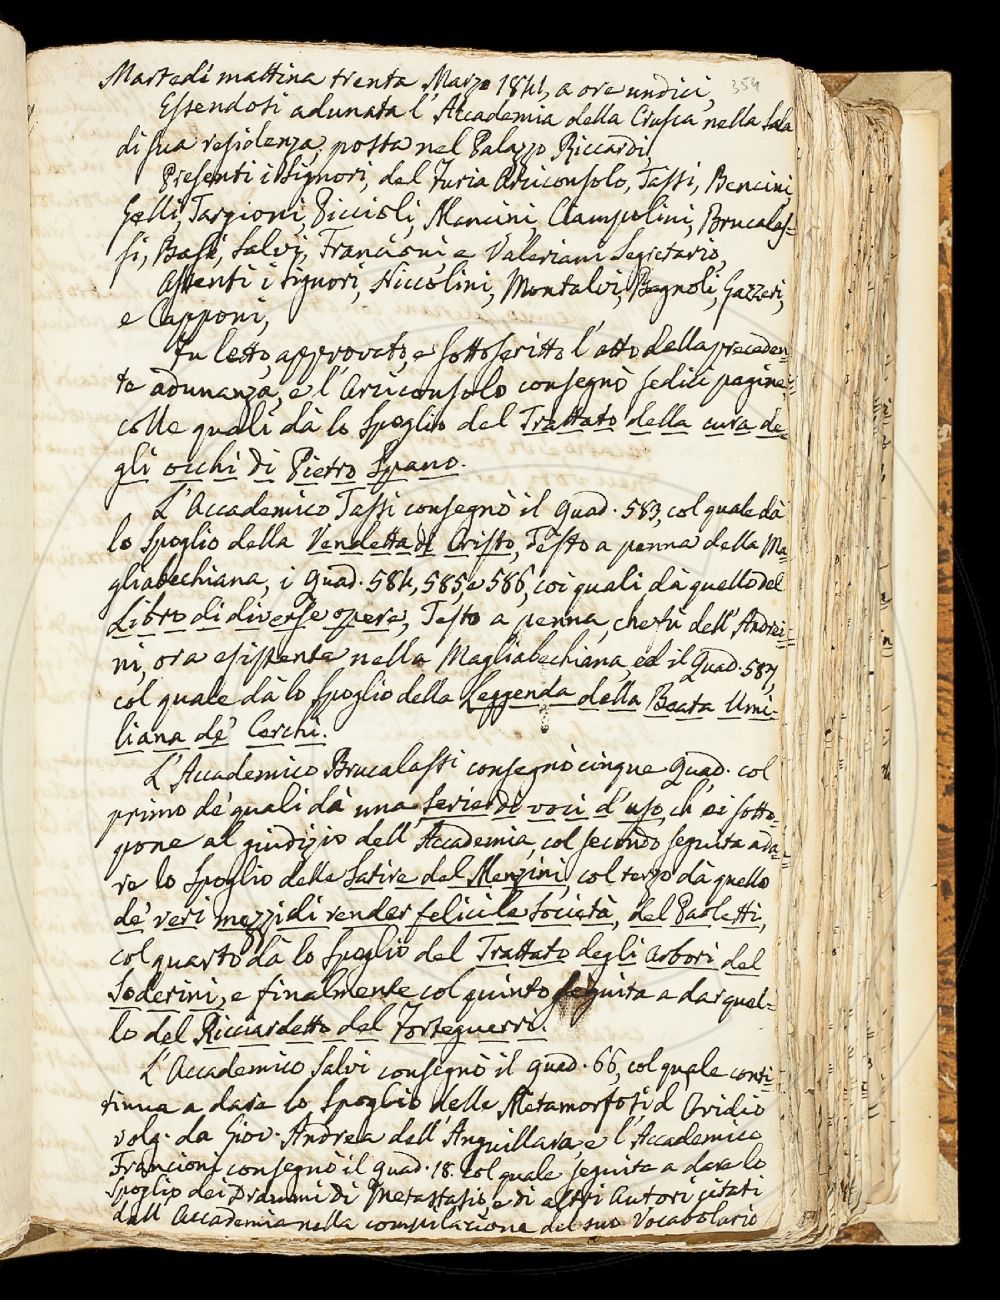 Martedì mattina trenta Marzo 1841, a ore undici,
354
Essendosi adunata l'Accademia della Crusca nella Sala
di sua residenza, posta nel Palazzo Riccardi,
Presenti i Signori, del Furia Arciconsolo, Tassi, Bencini,
Gelli, Targioni, Piccioli, Mancini, Ciampolini, Brucalas-
si, Basi, Salvi, Francioni e Valeriani Segretario,
Assenti i Signori, Niccolini, Montalvi, Bagnoli, Gazzeri,
e Capponi,
Fu letto, approvato, e sottoscritto l'atto della preceden-
te adunanza, e l'Arciconsolo consegnò sedici pagine,
colle quali dà lo spoglio del Trattato della cura de-
gli occhi di Pietro Spano.
L'Accademico Tassi consegnò il Quad. 583, col quale dà
lo spoglio della Vendetta di Cristo, Testo a penna della Ma-
gliabechiana, i Quad. 584, 585, e 586, coi quali dà quello del
Libro di diverse opere, Testo a penna, che fu dell'Andrei-
ni, ora esistente nella Magliabechiana, ed il Quad. 587,
col quale dà lo spoglio della Leggenda della Beata Umi-
liana de' Cerchi.
L'Accademico Brucalassi consegnò cinque Quad. col
primo de' quali dà una serie di voci d'uso, ch'ei sotto-
pone al giudizio dell'Accademia, col secondo seguita a da-
re lo spoglio delle Satire del Menzini, col terzo dà quello
de' veri mezzi di render felici le Società, del Paoletti,
col quarto dà lo spoglio del Trattato degli Arbori del
Soderini, e finalmente col quinto seguita a dar quel-
lo del Ricciardetto del Forteguerri.
L'Accademico Salvi consegnò il Quad. 66, col quale conti-
tinua a dare lo spoglio delle Metamorfosi d'Ovidio
volg. da Giov. Andrea dell'Anguillara, e l'Accademico
Francioni consegnò il Quad. 18. col quale seguita a dare lo
spoglio dei Drammi di Metastasio, e di altri Autori citati
dall'Accademia nella compilazione del suo Vocabolario